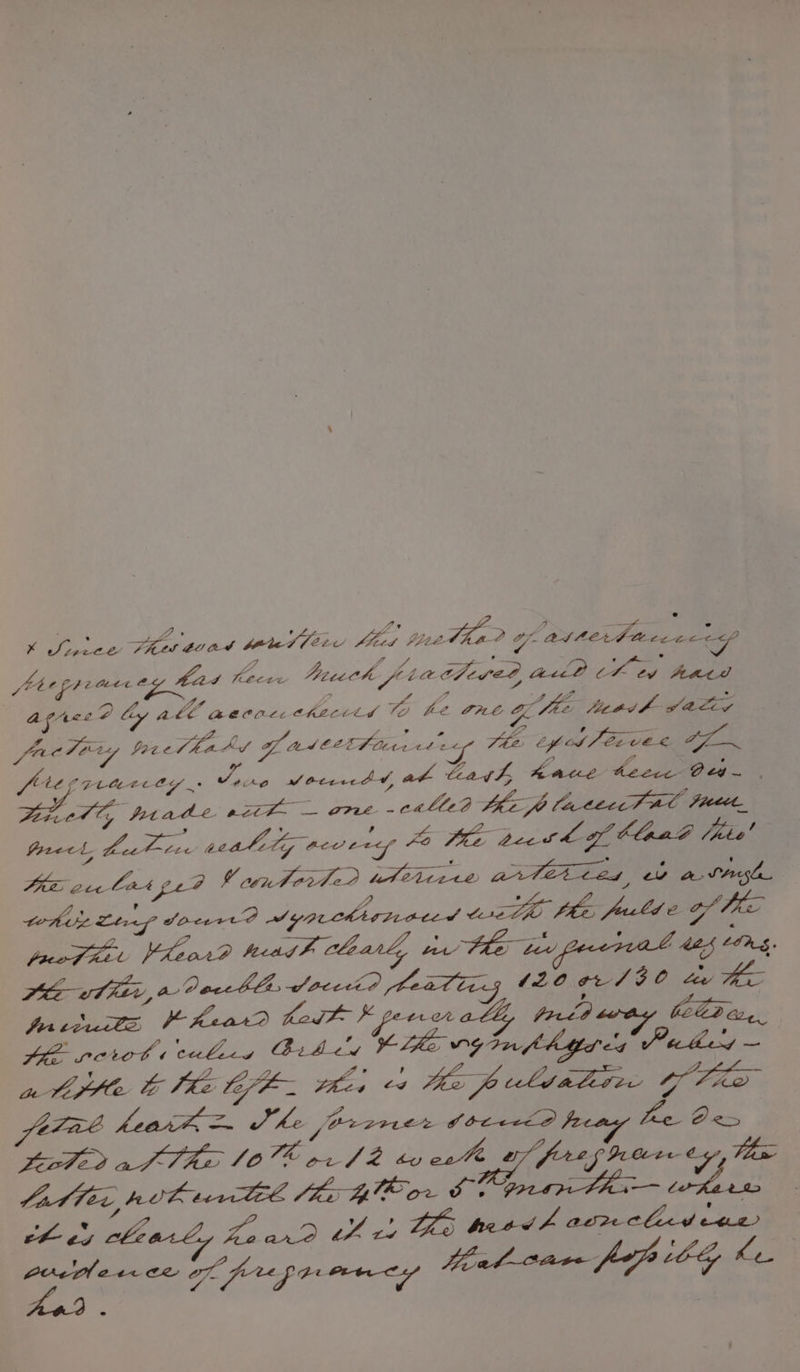 * Since this was written this method of ascertaining
pregnancy has been much practised, and it is now
agreed by all accoucheurs to be one of the most satis
factory methods of ascertaining the existence of
pregnancy. Two sounds, at least, have been dis-
tinctly made out — one - called the placental
but in reality owing to the rush of blood thro'
the enlarged & contorted uterine arteries, is a single
whizzing sound synchronous with the pulse of the
mother & heard most clearly in the inguinal regions.
the other, a double sound beating 120 or 130 in the
minute & heard best & generally midway between
the scrobiculus Cordis & the symphysis Pubis —
a little to the left — this is the pulsation of the
fœtal heart — The former sound may be de
tected at the 10th or 12 week of pregnancy, the
latter, not until the 4th or 5th month — where
it is clearly heard it is the most conclusive
evidence of pregnancy that can possibly be
had.